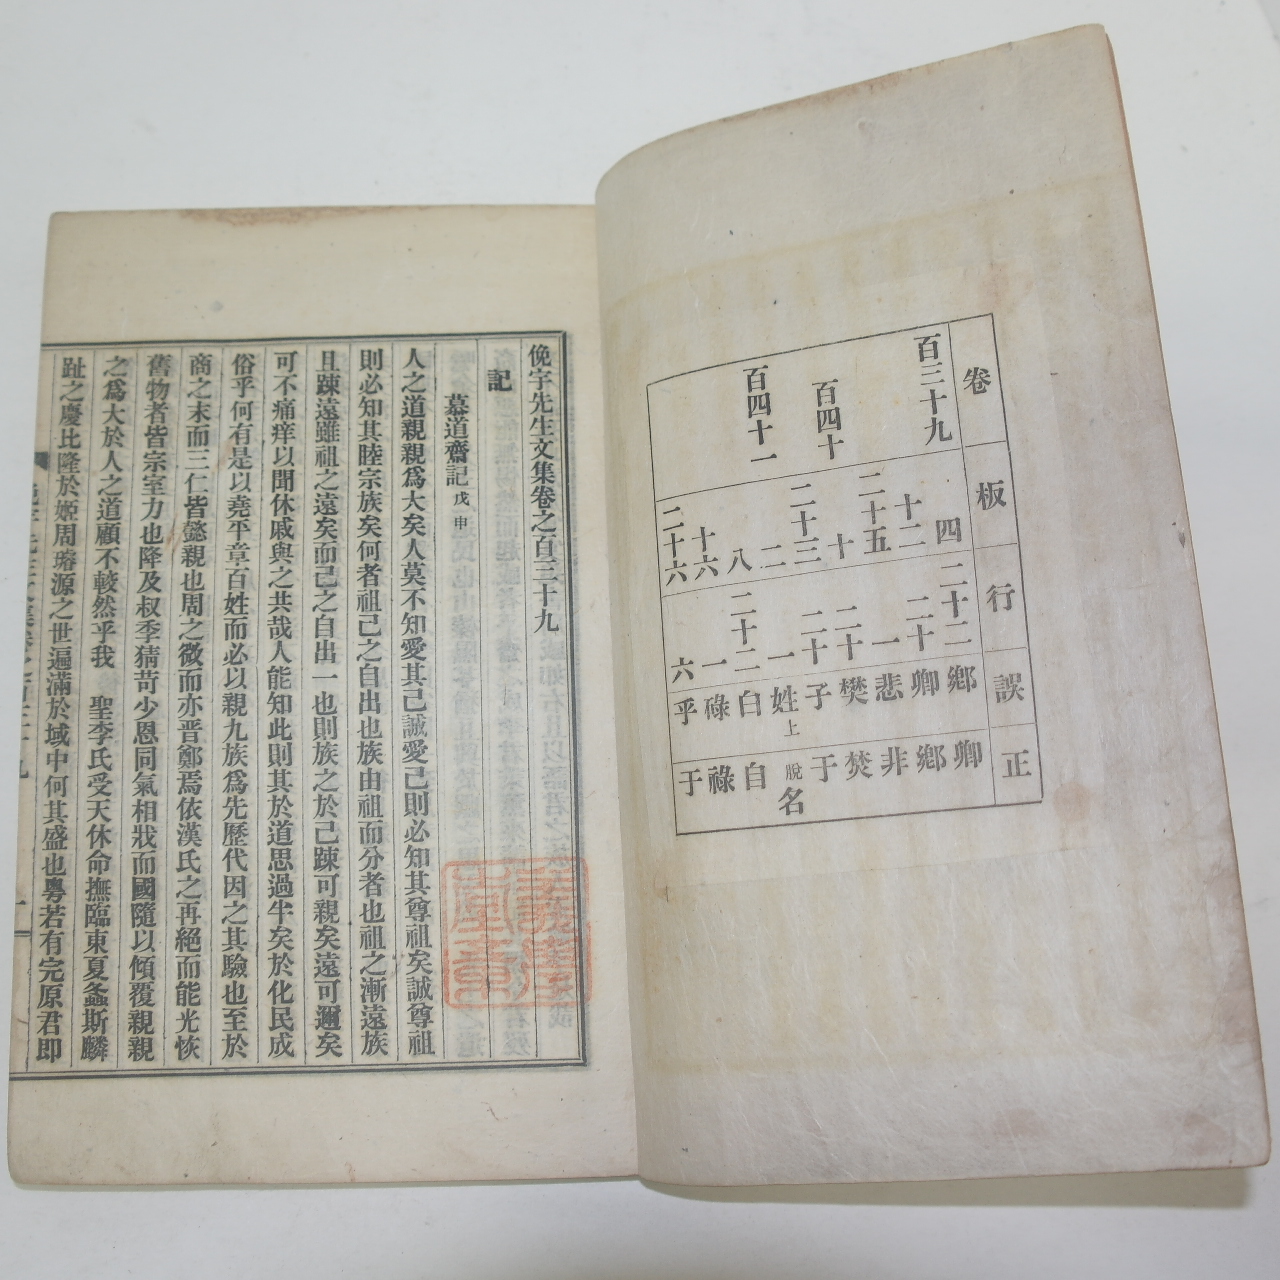 卷 板 行 誤 正
百三十九 四 二十二 鄉 卿
十二 二十 卿 鄉
二十五 一 悲 非
百四十 十 二十 樊 焚
二十三 二十 子 于
二 一 姓上 脫名
百四十一 八 二十二 白 自
十六 一 碌 祿
二十六 六 乎 于
俛宇先生文集卷之百三十九
記
慕道齋記戊申
人之道親親爲大矣人莫不知愛其己誠愛己則必知其尊祖矣誠尊祖
則必知其睦宗族矣何者祖己之自出也族由祖而分者也祖之漸遠族
且踈遠雖祖之遠矣而己之自出一也則族之於己踈可親矣遠可邇矣
可不痛痒以聞休戚與之共哉人能知此則其於道思過半矣於化民成
俗乎何有是以堯平章百姓而必以親九族爲先歷代因之其驗也至於
商之末而三仁皆懿親也周之微而亦晋鄭焉依漢氏之再絕而能光恢
舊物者皆宗室力也降及叔季猜苛少恩同氣相戕而國隨以傾覆親親
之爲大於人之道顧不較然乎我 聖李氏受天休命撫臨東夏螽斯麟
趾之慶比隆於姬周璿源之世遍滿於域中何其盛也粵若有完原君即